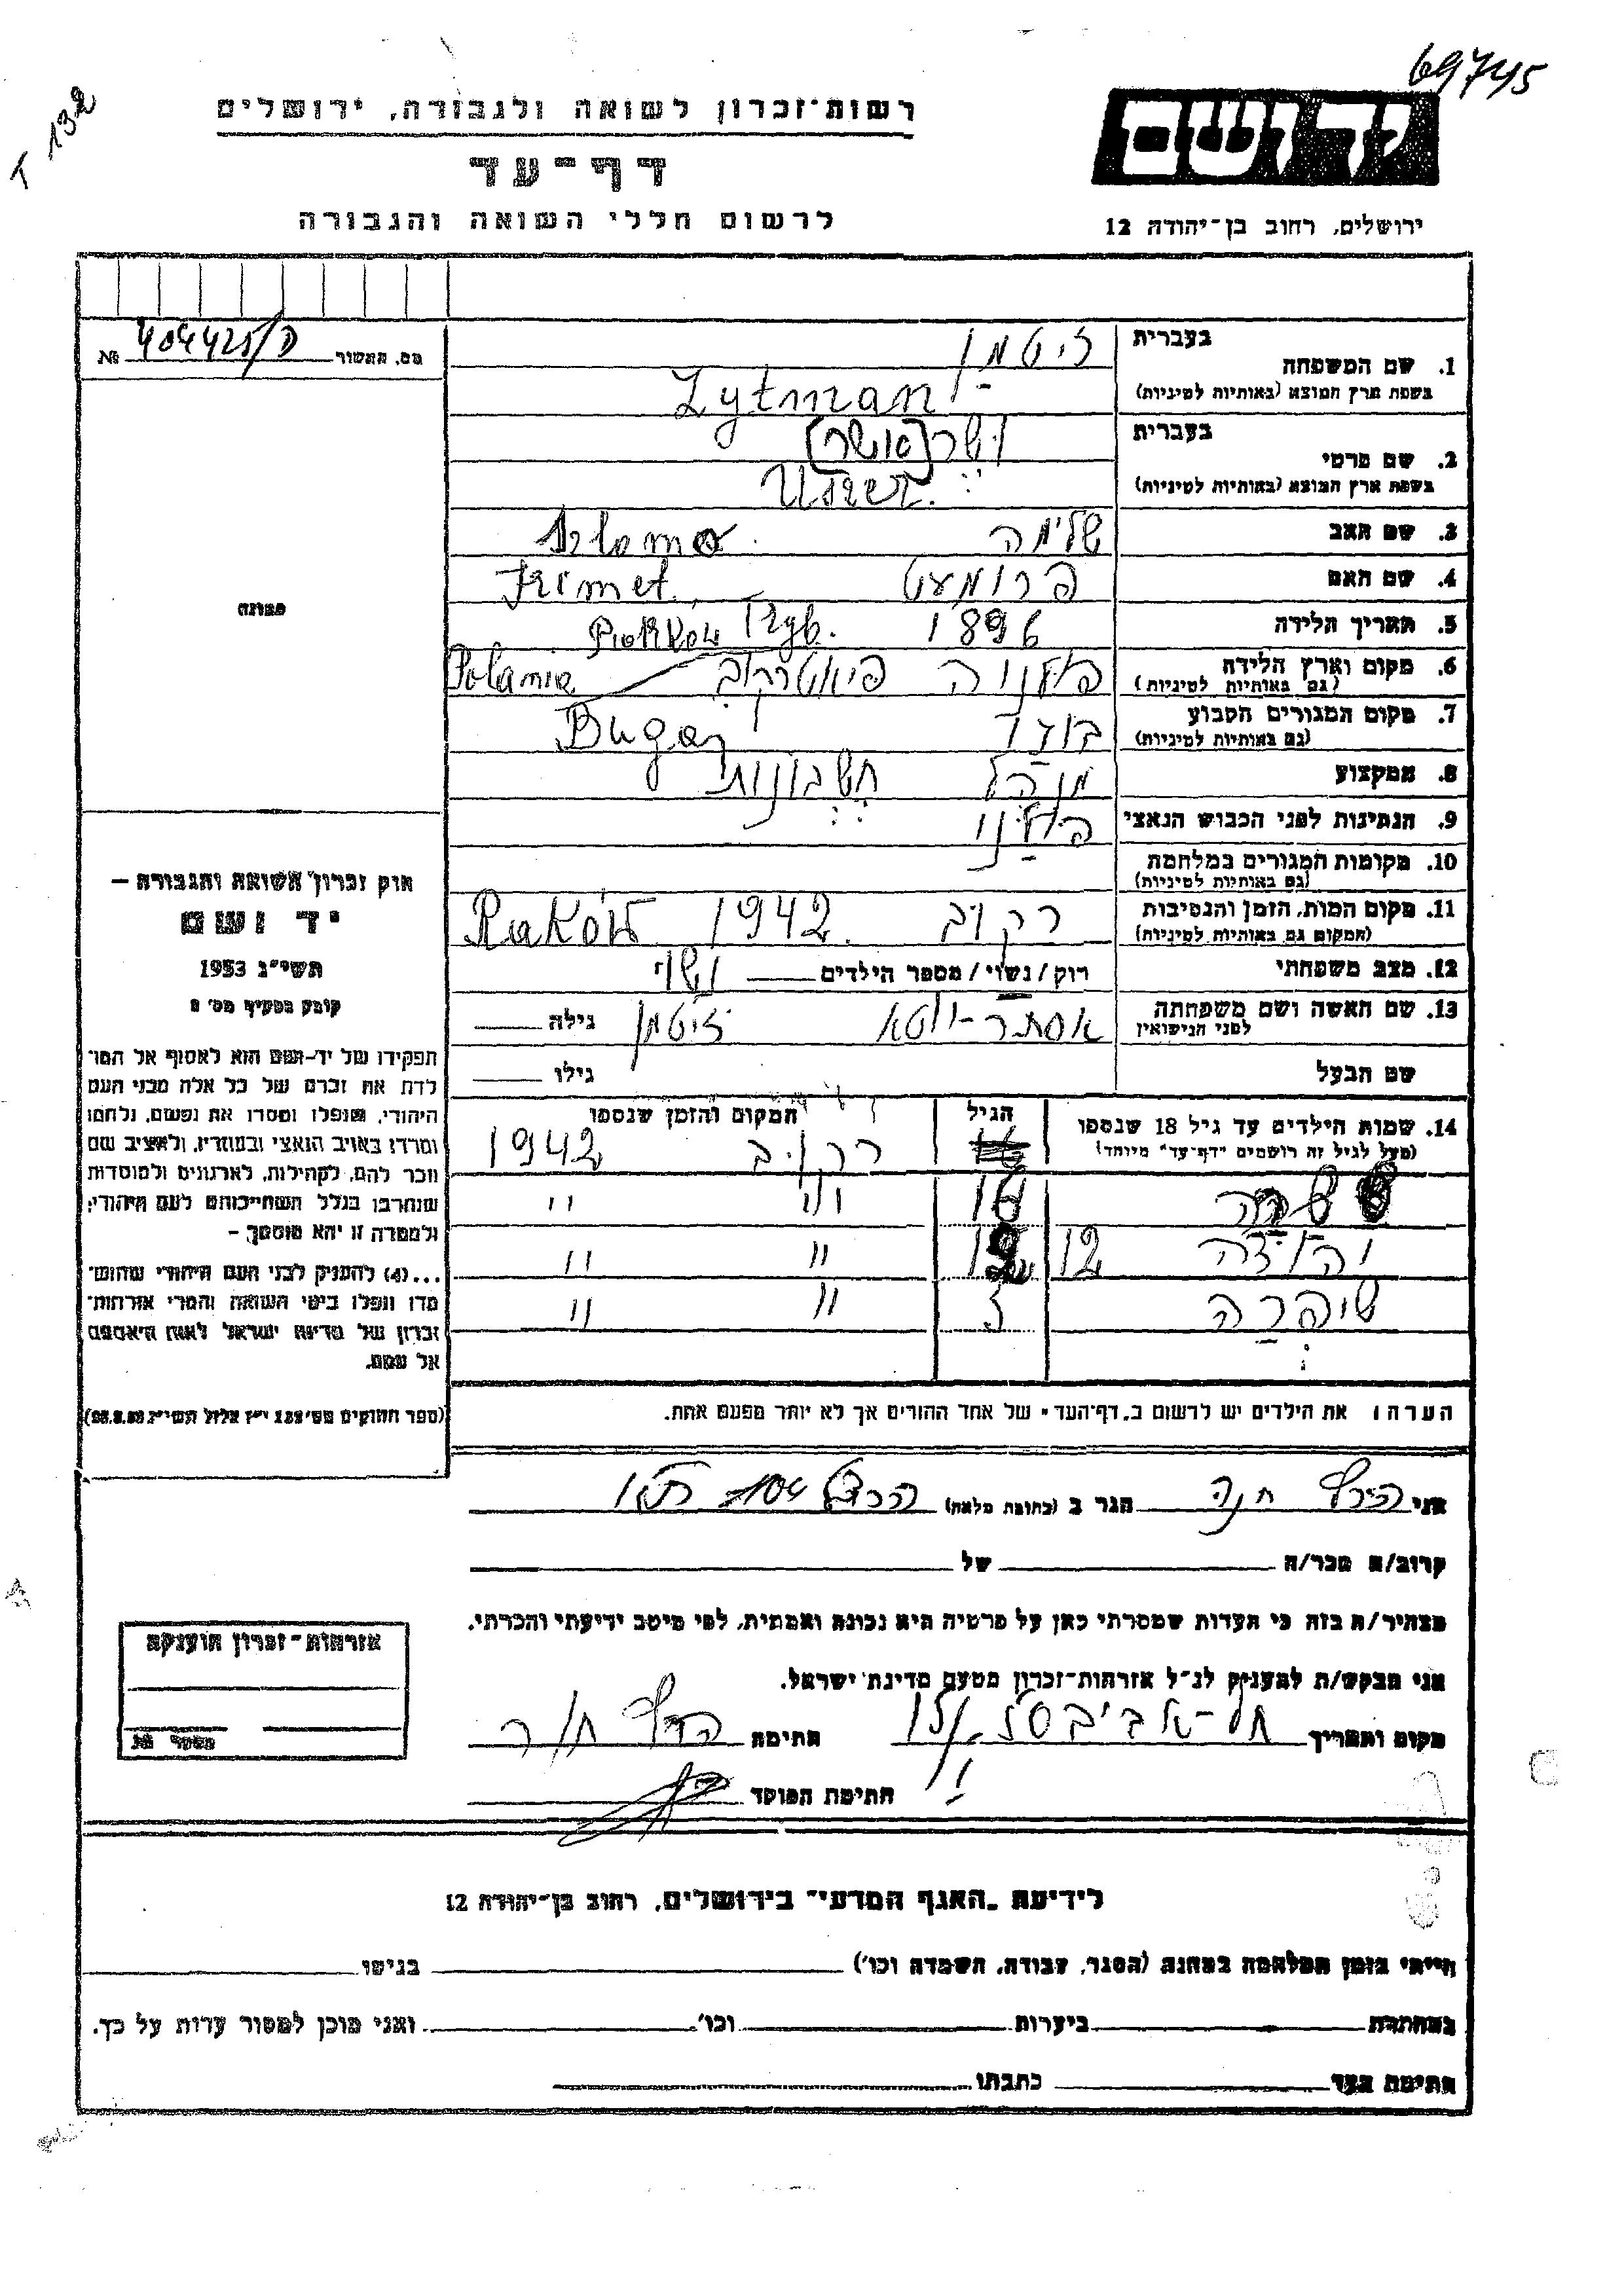 69745
T 132
רשות־זכרון לשואה ולגבורה, ירושלים
יד ושם
דף־עד
לרשום חללי השואה והגבורה
ירושלים, רחוב בן־יהודה 12
מס. האשור № 404425/ה
תמונה
1. שם המשפחה
בעברית זיטמן
בשפת ארץ המוצא (באותיות לטיניות) Zytman
2. שם פרטי
בעברית ושר (אושר)
בשפת ארץ המוצא (באותיות לטיניות) Uszer.
3. שם האב שלימה Szlama
4. שם האם פרומעט Frimet
5. תאריך הלידה 1896
6. מקום וארץ הלידה פולניה פיוטרקוב Piotrków Tryb. Polania
(גם באותיות לטיניות)
7. מקום המגורים הקבוע בוגי Bugaj
(גם באותיות לטיניות)
8. המקצוע מנהל חשבונות
9. הנתינות לפני הכבוש הנאצי פולני
10. מקומות המגורים במלחמה
(גם באותיות לטיניות)
11. מקום המות, הזמן והנסיבות רקוב 1942 Raków
(המקום גם באותיות לטיניות)
12. מצב משפחתי רוק/נשוי/מספר הילדים נשוי
13. שם האשה ושם משפחתה אסתר־יוטא זיטמן גילה
לפני הנישואין
שם הבעל גילו
14. שמות הילדים עד גיל 18 שנספו הגיל המקום והזמן שנספו
(מעל לגיל זה רושמים "דף־עד" מיוחד) רקוב 1942
שרה 16 " "
יהודה 12 12 " "
שיפרה " "
הערה: את הילדים יש לרשום ב"דף־העד" של אחד ההורים אך לא יותר מפעם אחת.
חוק זכרון השואה והגבורה –
יד ושם
תשי״ג 1953
קובע בסעיף מס׳ 2
תפקידו של יד־ושם הוא לאסוף אל המו־
לדת את זכרם של כל אלה מבני העם
היהודי, שנפלו ומסרו את נפשם, נלחמו
ומרדו באויב הנאצי ובעוזריו, ולהציב שם
וזכר להם, לקהילות, לארגונים ולמוסדות
שנחרבו בגלל השתייכותם לעם היהודי;
ולמטרה זו יהא מוסמך –
...(4) להעניק לבני העם היהודי שהוש־
מדו ונפלו בימי השואה והמרי אזרחות־
זכרון של מדינת ישראל לאות היאספם
אל עמם.
(ספר החוקים מס׳ 132 י״ז אלול תשי״ג 28.8.53)
אני חנה הגר ב (כתובת מלאה)
קרוב/ה מכר/ה של
מצהיר/ה בזה כי העדות שמסרתי כאן על פרטיה היא נכונה ואמתית, לפי מיטב ידיעתי והכרתי.
אני מבקש/ת להעניק לנ״ל אזרחות־זכרון מטעם מדינת ישראל.
מקום ותאריך תל־אביב חתימה
חתימת המוסד
אזרחות־זכרון הוענקה
מספר №
לידיעת "האגף המדעי" בירושלים, רחוב בן־יהודה 12
הייתי בזמן המלחמה במחנה (הסגר, עבודה, השמדה וכו׳) בגיטו
במחתרת ביערות וכו׳ ואני מוכן למסור עדות על כך.
חתימת העד כתבתו